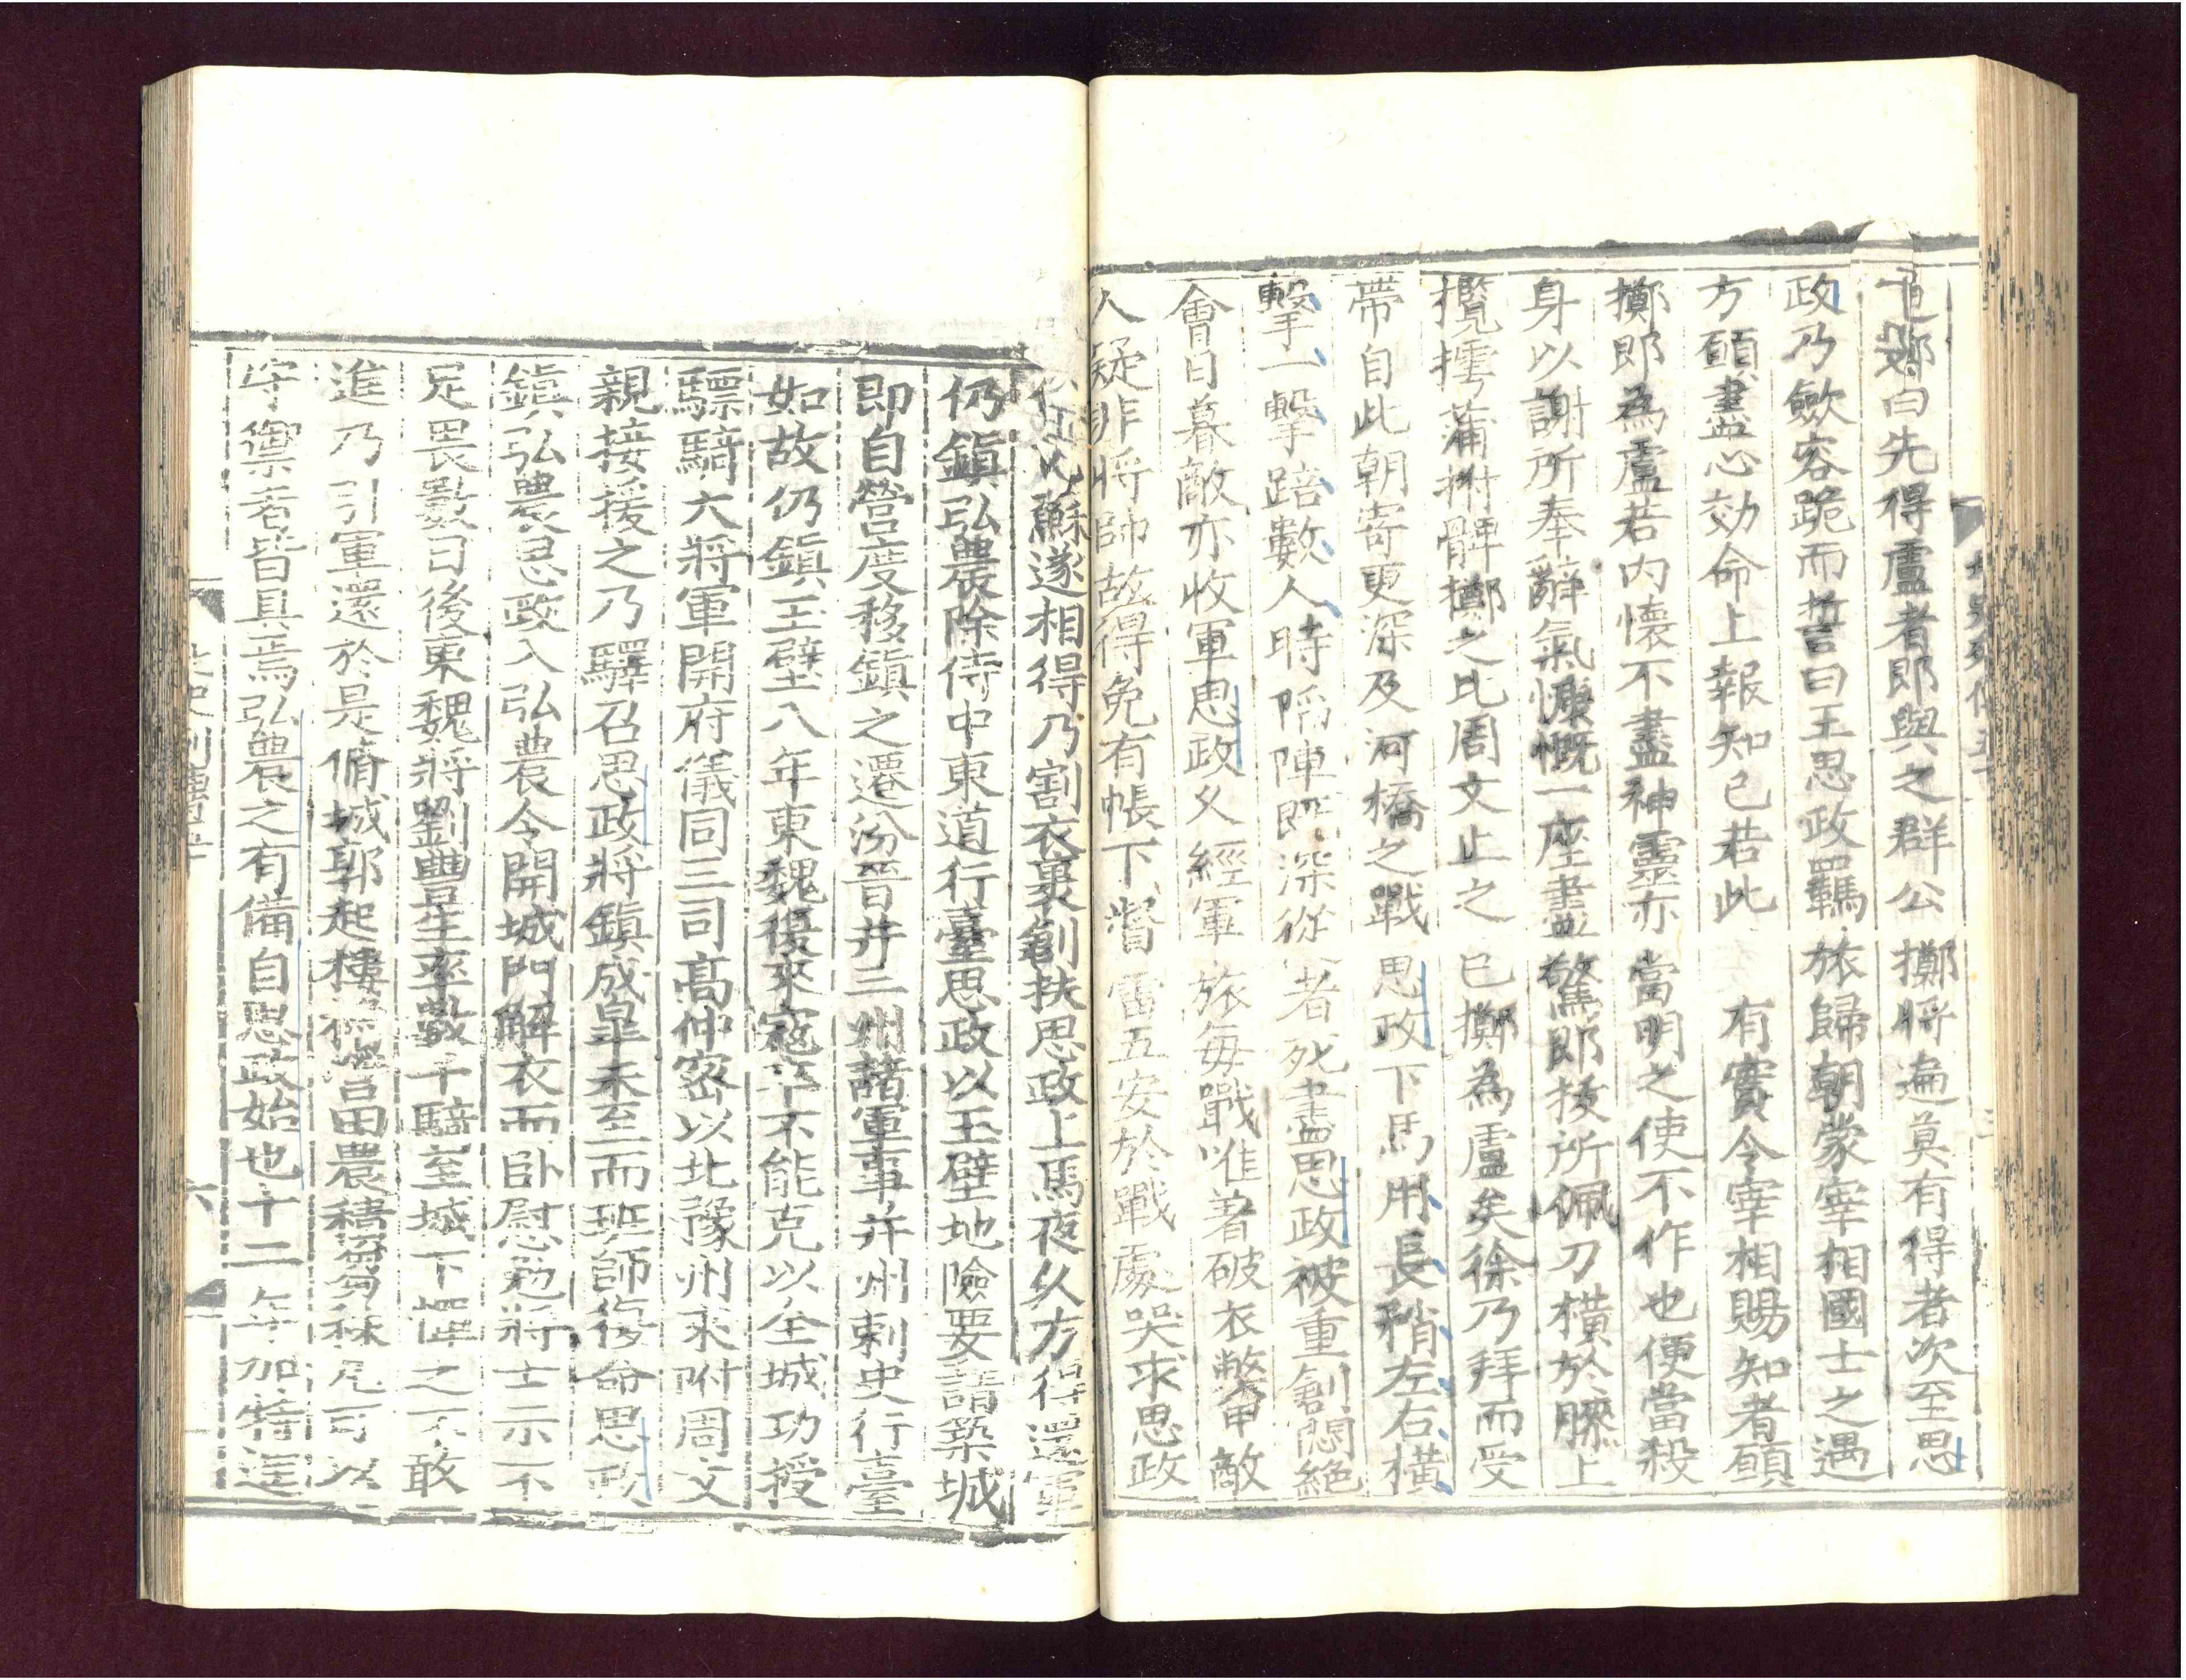 遍擲曰先得盧者即與之群公擲將遍莫有得者次至思
政乃歛容跪而誓曰王思政羈旅歸朝蒙宰相國士之遇
方願盡心効命上報知己若此有實令宰相賜知者願
擲即為盧若内懷不盡神靈亦當明之使不作也便當殺
身以謝所奉辭氣慷慨一座盡驚即拔所佩刀橫於膝上
攬摴蒲拊髀擲之比周文止之已擲為盧矣徐乃拜而受
帶自此朝寄更深及河橋之戰思政下馬用長矟左右橫
擊一擊踣數人時陷陣既深從者死盡思政被重創悶絕
會日暮敵亦收軍思政久經軍旅每戰唯著破衣弊甲敵
人疑非將帥故得免有帳下督雷五安於戰處哭求思政
會已蘇遂相得乃割衣裹創扶思政上馬夜久方得還軍
仍鎮弘農除侍中東道行臺思政以玉壁地險要請築城
即自營度移鎮之遷汾晉并三州諸軍事并州刺史行臺
如故仍鎮玉壁八年東魏復來寇卒不能克以全城功授
驃騎大將軍開府儀同三司高仲密以北豫州來附周文
親接援之乃驛召思政將鎮成皐未至而班師復命思政
鎮弘農思政入弘農令開城門解衣而卧慰勉將士示不
足畏數日後東魏將劉豐生率數千騎至城下憚之不敢
進乃引軍還於是脩城郭起樓櫓營田農積芻秣凡可以
守禦者皆具焉弘農之有備自思政始也十二年加特進
北史列傳五十
六